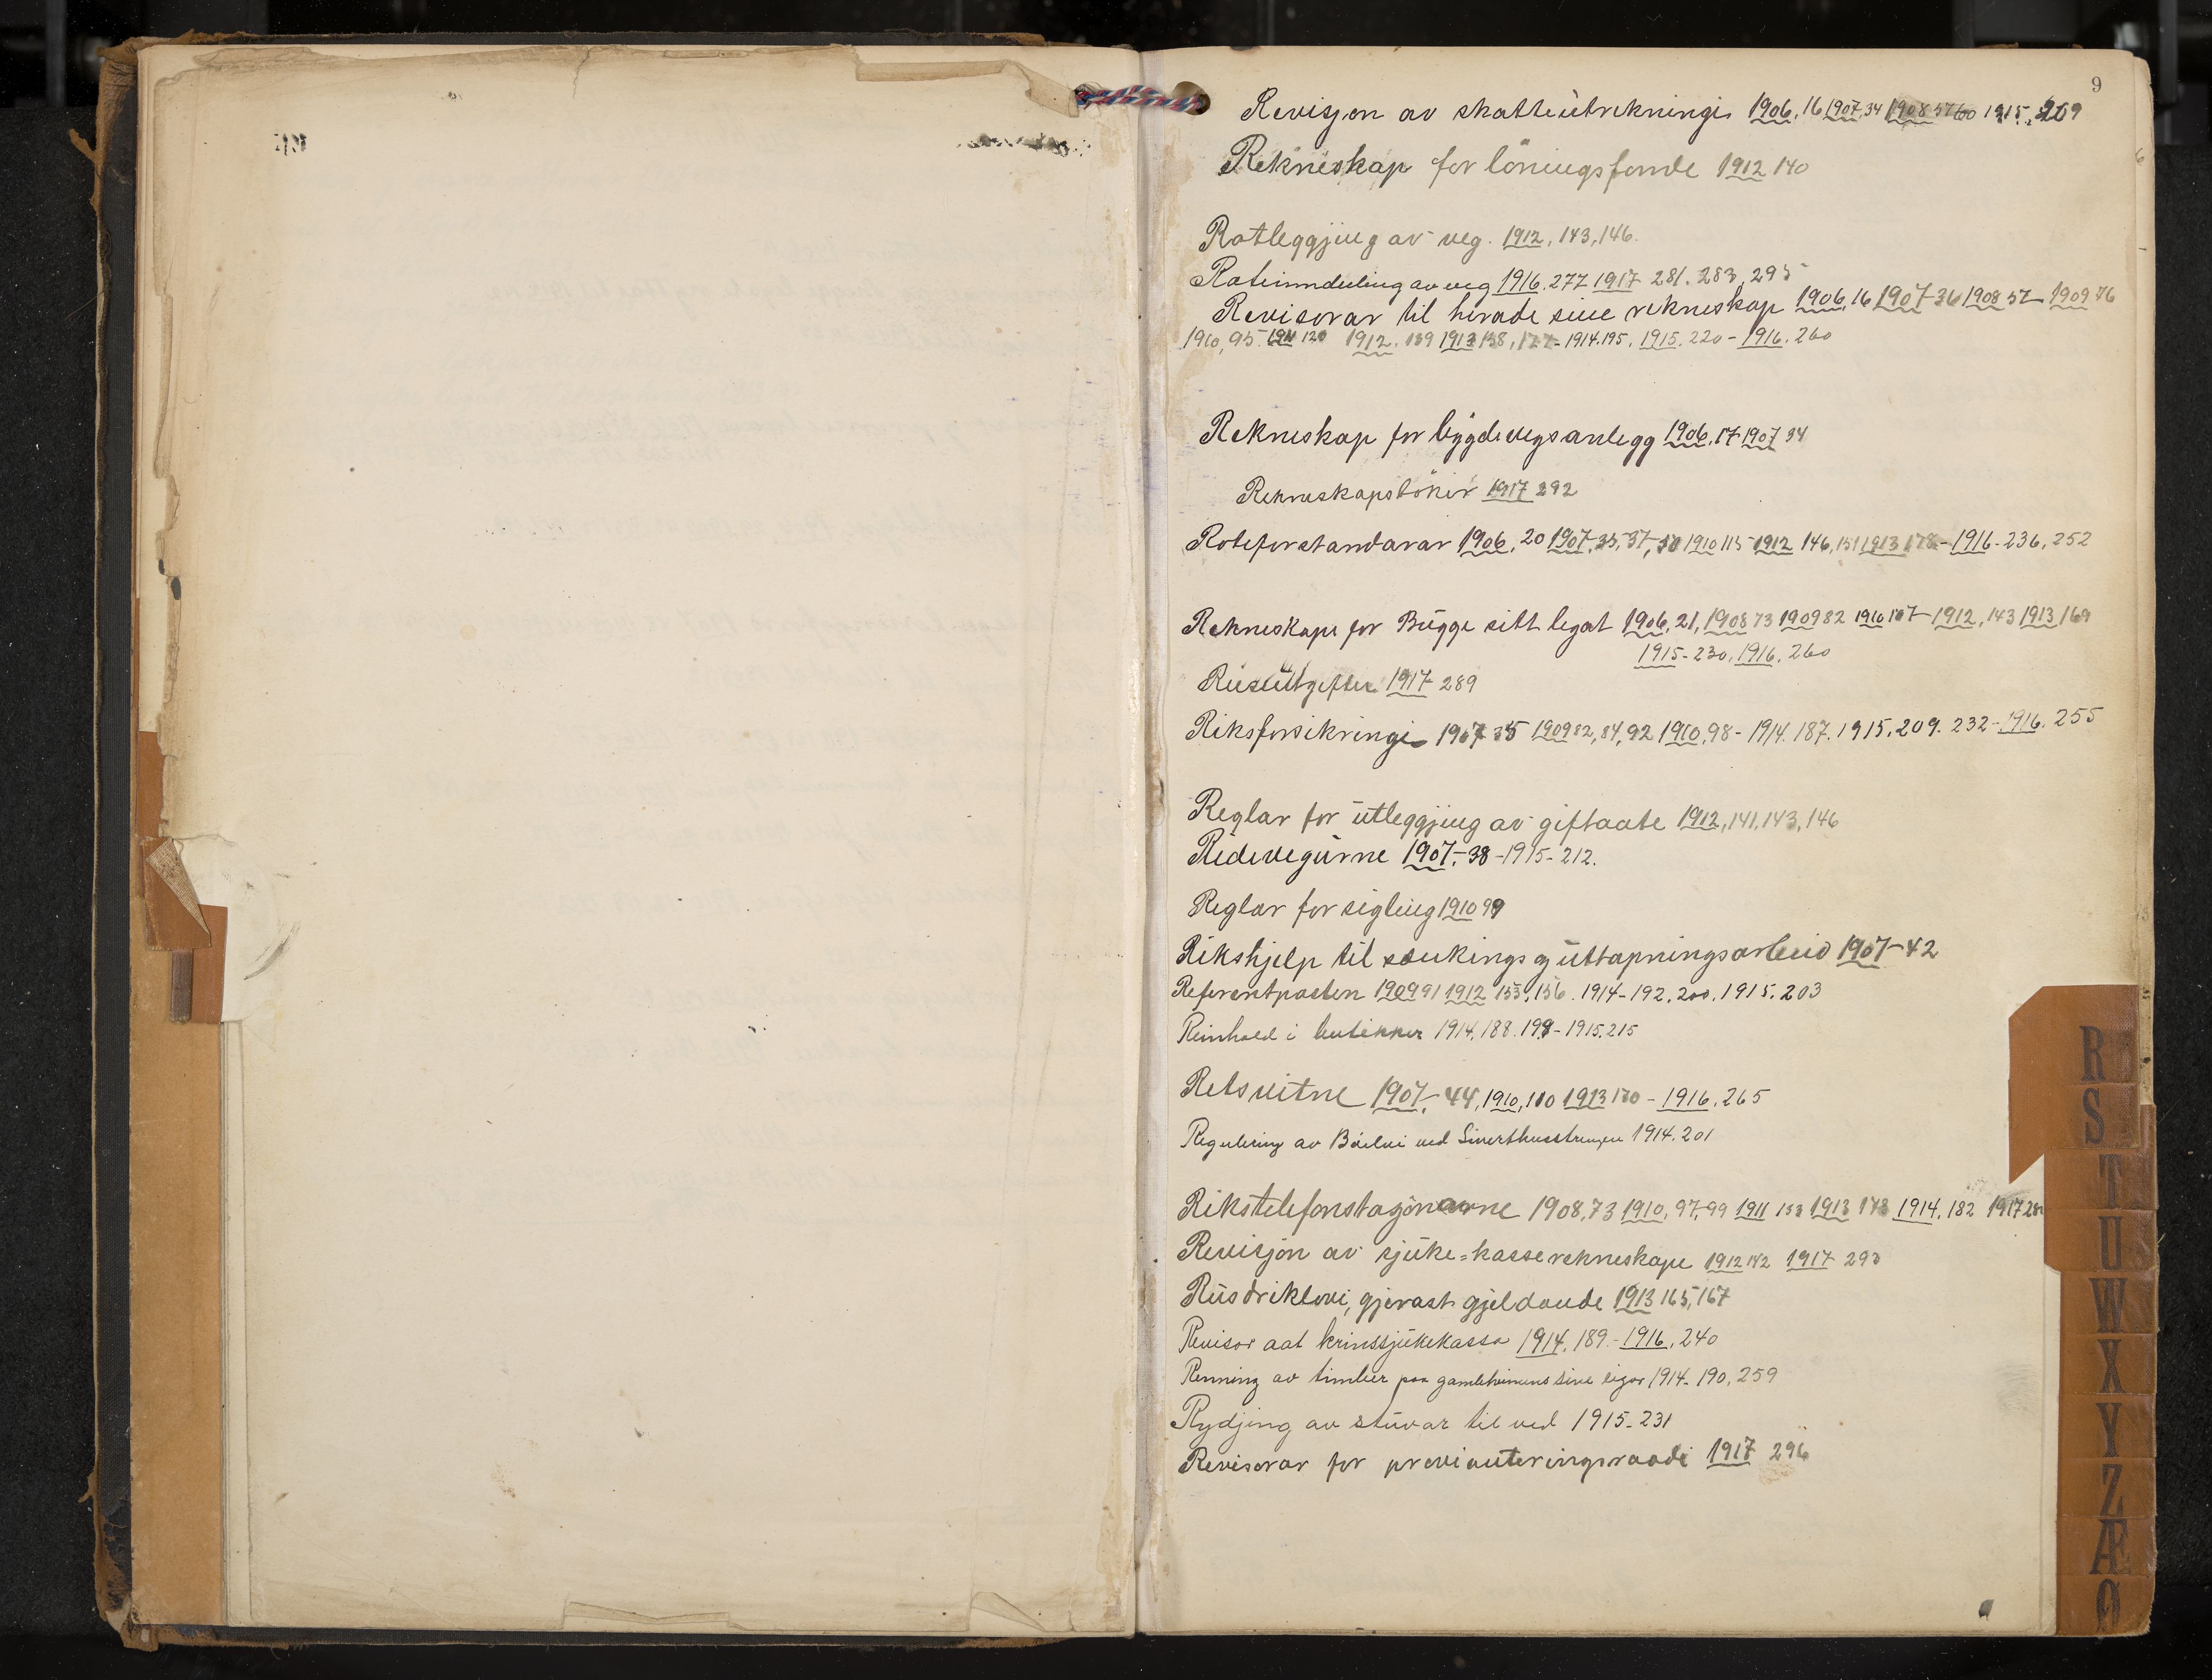 9
Revisjon av skatteutrekningi 1906, 16 1907, 34 1908 57 60 1915, 209
Rekneskap for löningsfonde 1912 140
Rotleggjing av veg. 1912, 143, 146.
Roteinndeling av veg 1916. 277 1917 281. 283, 295
Revisorar til herade sine rekneskap 1906, 16 1907 36 1908 57 1909 76
1910, 95. 1911 120 1912. 139 1913 158, 177 - 1914. 195. 1915. 220 - 1916. 260
Rekneskap for bygdevegsanlegg 1906, 17 1907 34
Rekneskapsböker 1917 292
Roteforstandarar 1906, 20 1907, 35, 37, 50 1910 115 1912 146, 151 1913 178 - 1916 - 236, 252
Rekneskape for Bugge sitt legat 1906, 21, 1908 73 1909 82 1910 107 - 1912, 143 1913, 169
1915 - 230, 1916. 260
Rusutgifter 1917 289
Riksforsikringi 1907 35 1909 82, 84, 92 1910, 98 - 1914. 187. 1915. 209. 232 - 1916. 255
Reglar for utleggjing av giftaate 1912, 141, 143, 146
Ridevegurne 1907, 38 - 1915 - 212.
Reglar for sigling 1910 99
Rikshjelp til senkings og uttapningsarbeid 1907 - 42
Referentposten 1909 91 1912 153, 156. 1914 - 192. 200. 1915. 203
Reinhold i butikker 1914. 188. 198 - 1915. 215
Retsvitne 1907, 44, 1910, 110 1913 170 - 1916. 265
Regulering av ved 1914. 201
Rikstelefonstasjonarne 1908, 73 1910, 97, 99 1911 133 1913 173 1914. 182 1917
Revisjon av sjuke=kasserekneskape 1912 142 1917 293
Rusdriklovi, gjerast gjeldande 1913 165, 167
Revisor aat krinssjukekassa 1914. 189 - 1916. 240
Renning av timber paa gamleheimens sine eigor 1914 - 190, 259
Rydjing av stuvar til ved 1915 - 231
Revisorar for provianteringsraadi 1917 296
R
S
T
U
W
X
Y
Z
Æ
Ø